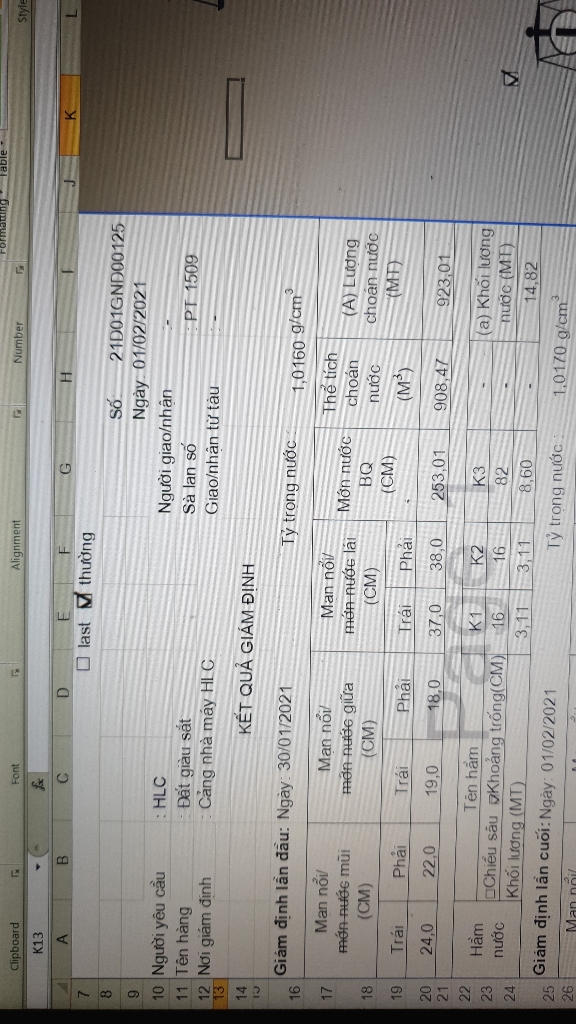 Formatting Table Style
Clipboard Font Alignment Number
K13 fx
A B C D E F G H I J K L
7 last thường
8 Số 21D01GND00125
9 Ngày 01/02/2021
10 Người yêu cầu : HLC Người giao/nhận :-
11 Tên hàng : Đất giàu sắt Sà lan số : PT 1509
12 Nơi giám định : Cảng nhà máy HLC Giao/nhận từ tàu : -
13
14 KẾT QUẢ GIÁM ĐỊNH
15
16 Giám định lần đầu: Ngày: 30/01/2021 Tỷ trọng nước : 1,0160 g/cm³
17 Mạn nổi/ Mạn nổi/ Mạn nổi/ Món nước Thể tích (A) Lượng
món nước mũi món nước giữa món nước lái BQ choán choán nước
18 (CM) (CM) (CM) (CM) nước (MT)
19 Trái Phải Trái Phải Trái Phải (M³)
20 24,0 22,0 19,0 18,0 37,0 38,0 253,01 908,47 923,01
21
22 Hầm Tên hầm K1 K2 K3 - (a) Khối lượng
23 nước Chiều sâu Khoảng trống(CM) 16 16 82 - nước (MT)
24 Khối lượng (MT) 3,11 3,11 8,60 - 14,82
25 Giám định lần cuối: Ngày: 01/02/2021 Tỷ trọng nước : 1,0170 g/cm³
26 Mạn nổi/
Page 1